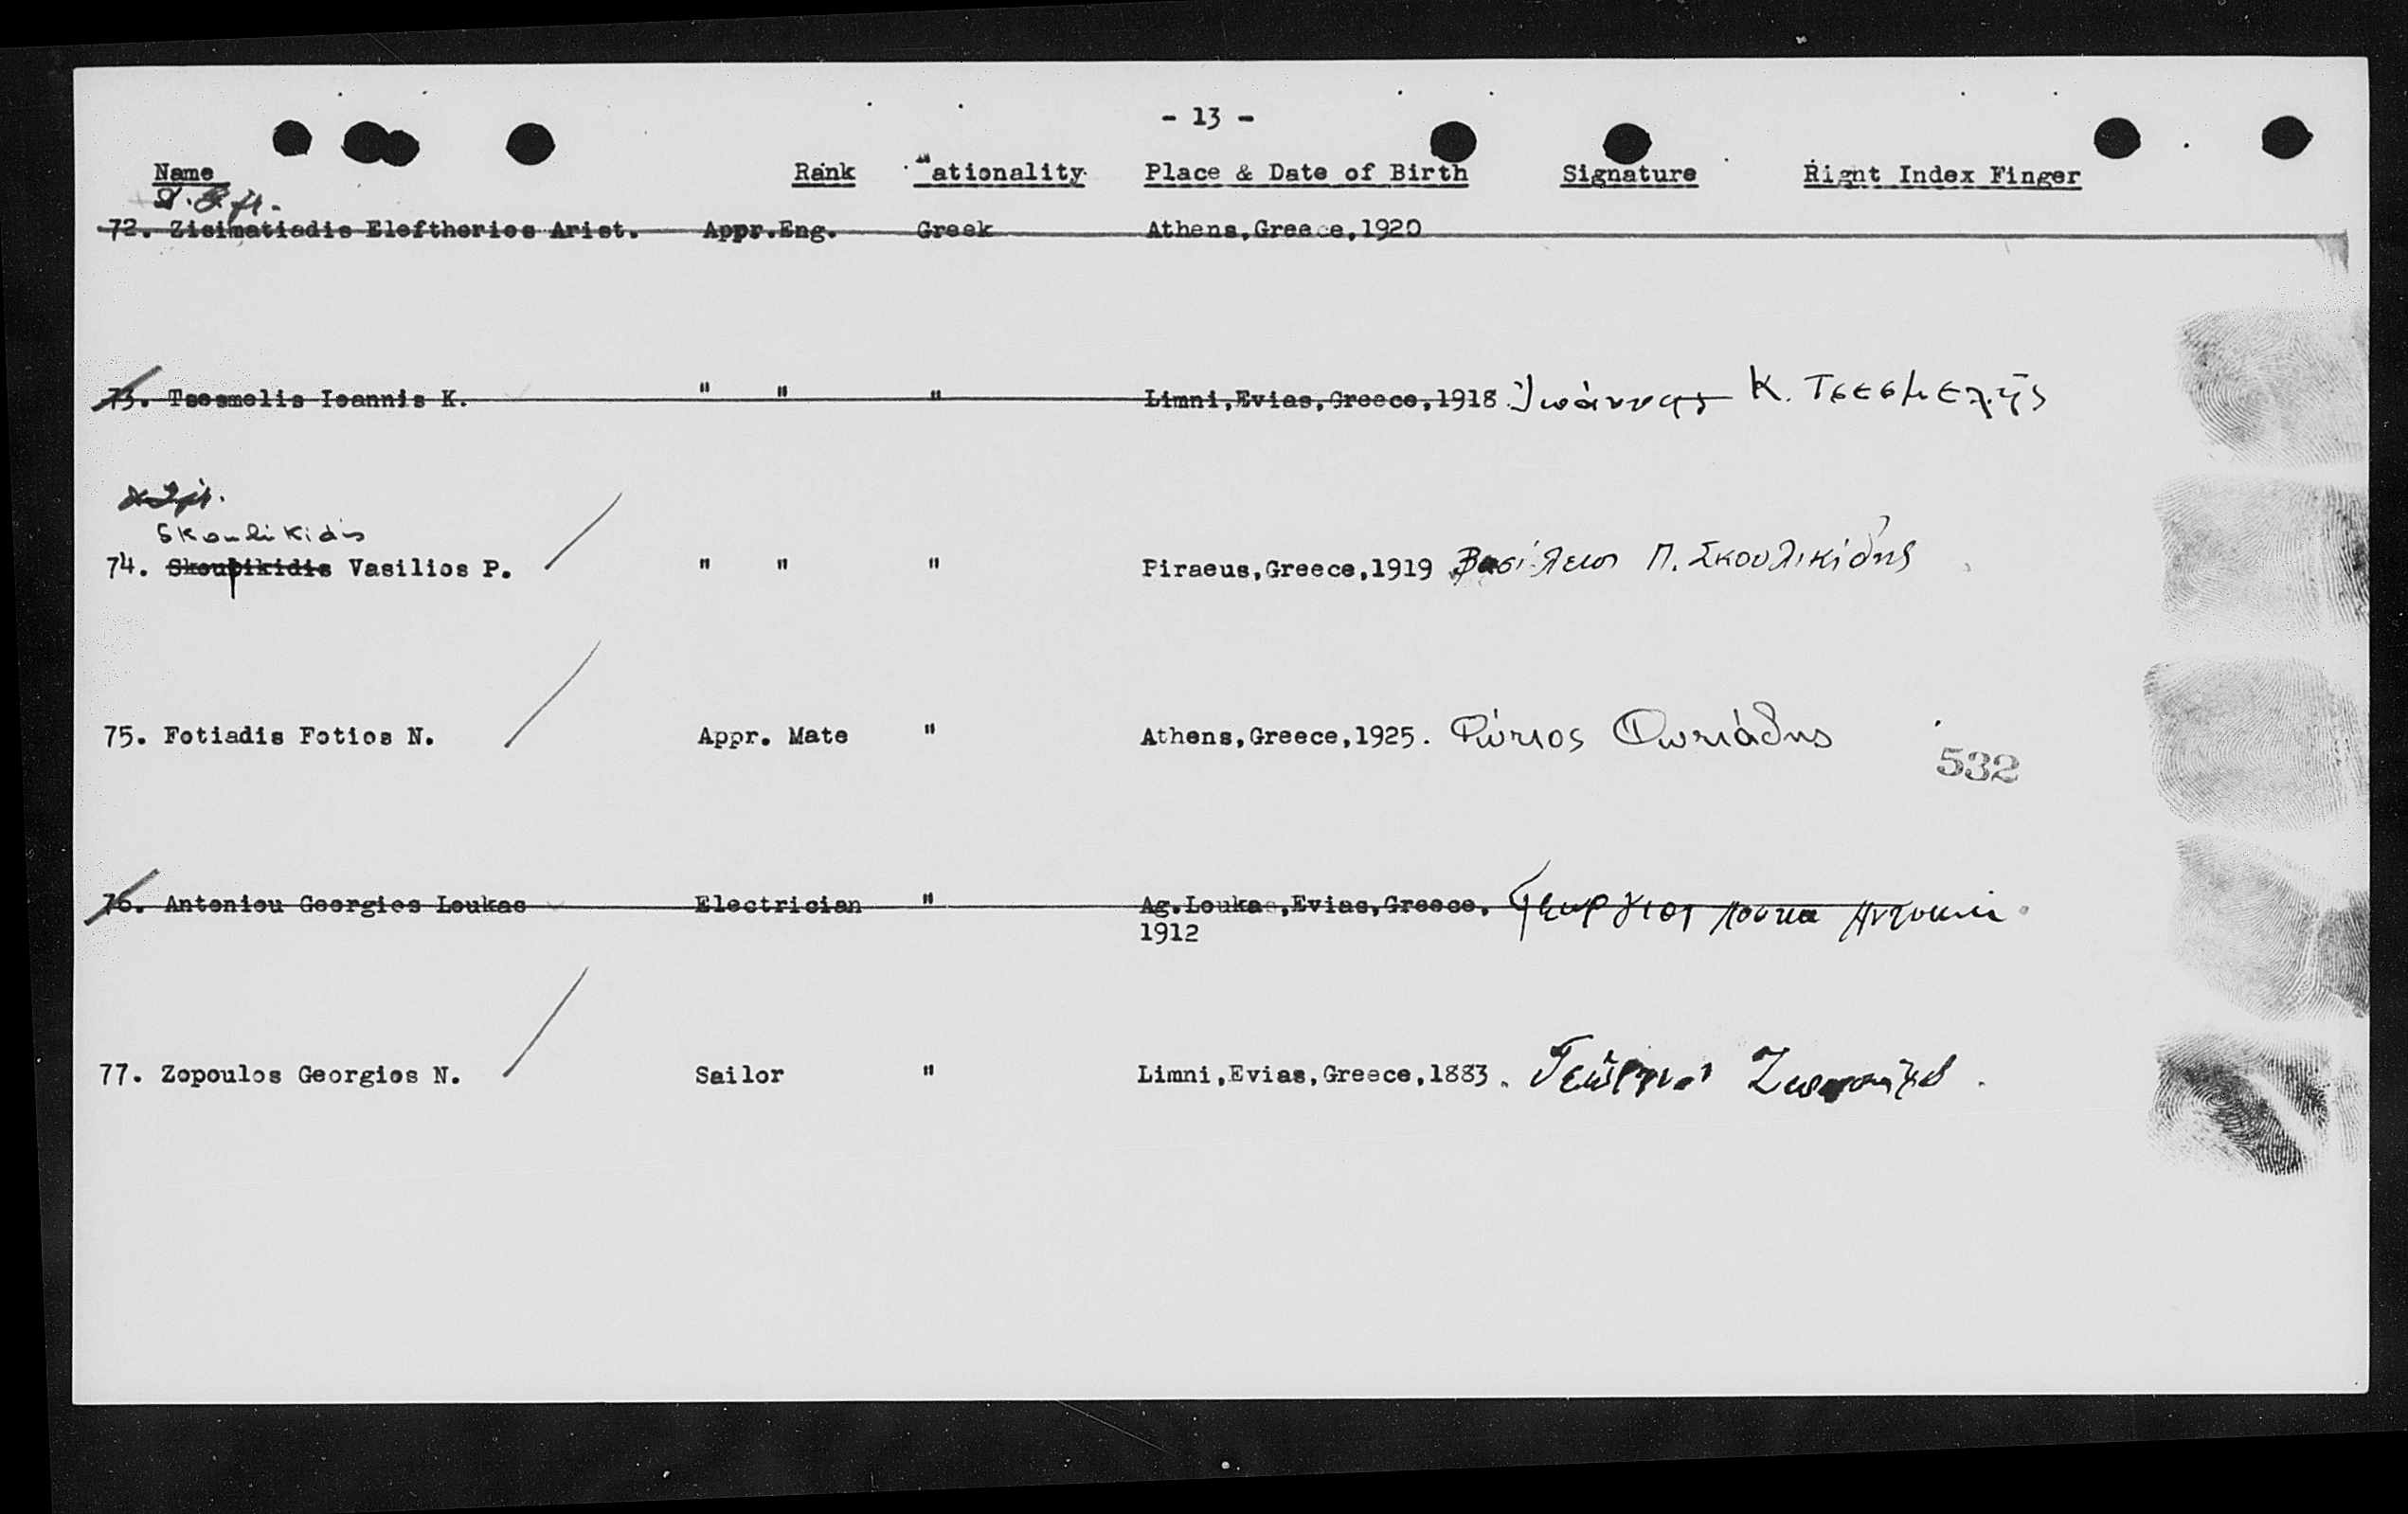 - 13 -
Name Rank Nationality Place & Date of Birth Signature Right Index Finger
72. Zisimatiadis Eleftherios Arist. Appr.Eng. Greek Athens,Greece,1920
73. Tsesmelis Ioannis K. " " " Limni,Evias,Greece,1918 Ἰωάννης Κ. Τσεσμελῆς
Skoulikidis
74. Skoupikidis Vasilios P. " " " Piraeus,Greece,1919 Βασίλειος Π. Σκουλικίδης
75. Fotiadis Fotios N. Appr. Mate " Athens,Greece,1925. Φώτιος Φωτιάδης
532
76. Antoniou Georgios Loukas Electrician " Ag.Loukas,Evias,Greece, Γεωργιος Λουκα Αντωνιου
1912
77. Zopoulos Georgios N. Sailor " Limni,Evias,Greece,1883. Γεώργιος